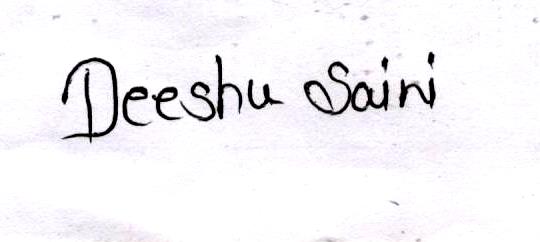 Deeshu Saini